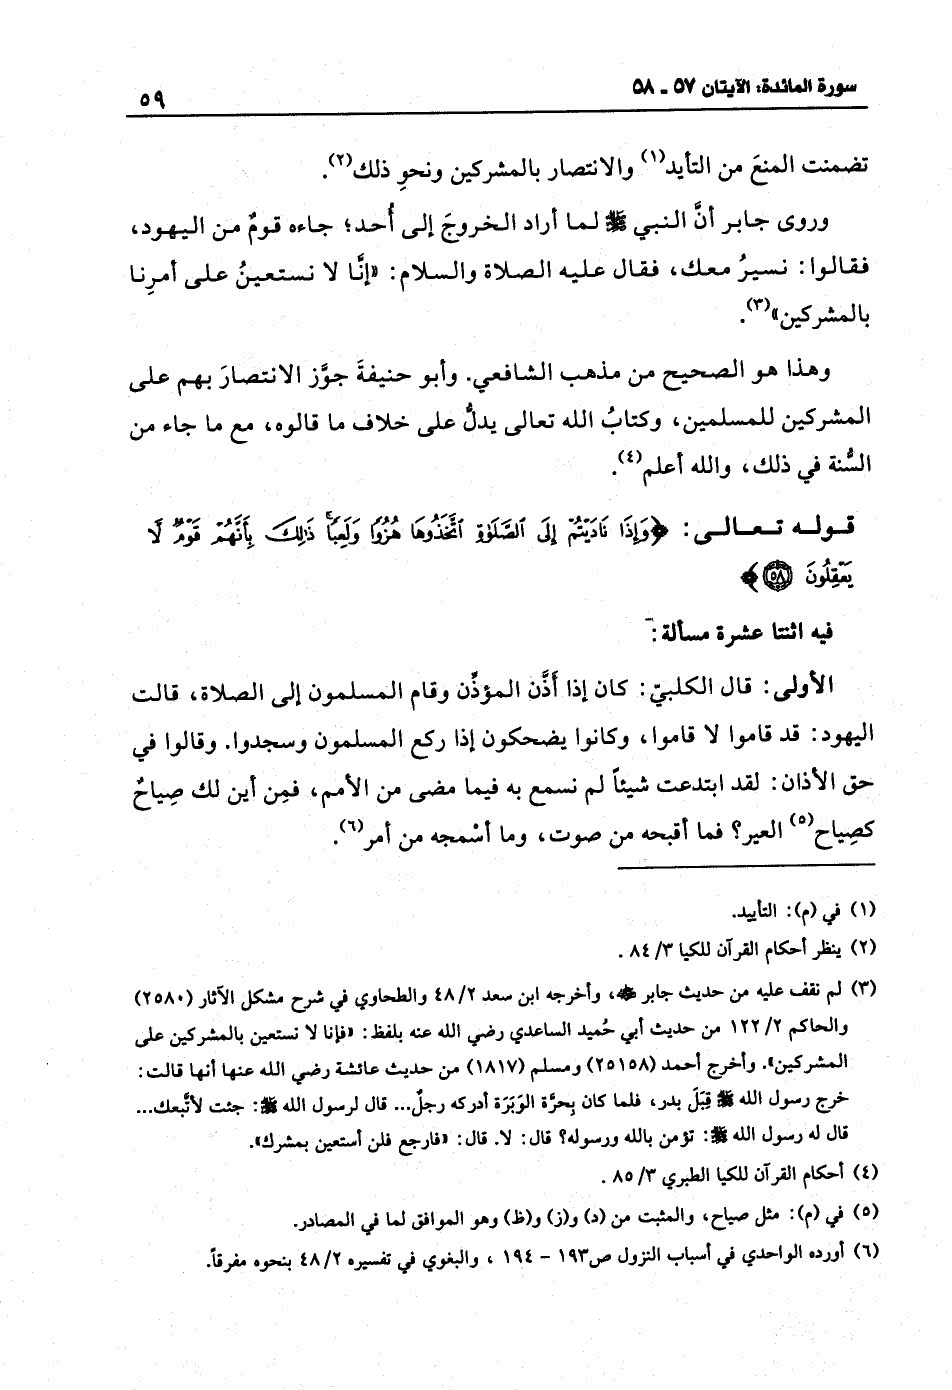 سورة المائدة: الآيتان ٥٧ ـ ٥٨
٥٩
تضمنت المنعَ من التأيد(١) والانتصار بالمشركين ونحوِ ذلك(٢).
وروى جابر أنَّ النبي ﷺ لما أراد الخروجَ إلى أُحد؛ جاءه قومٌ من اليهود،
فقالوا: نسيرُ معك، فقال عليه الصلاة والسلام: «إنَّا لا نستعينُ على أمرِنا
بالمشركين»(٣).
وهذا هو الصحيح من مذهب الشافعي. وأبو حنيفةَ جوَّز الانتصارَ بهم على
المشركين للمسلمين، وكتابُ الله تعالى يدلُّ على خلاف ما قالوه، مع ما جاء من
السُّنة في ذلك، والله أعلم(٤).
قوله تعالى: ﴿وَإِذَا نَادَيْتُمْ إِلَى ٱلصَّلَوٰةِ ٱتَّخَذُوهَا هُزُوًا وَلَعِبًاۚ ذَٰلِكَ بِأَنَّهُمْ قَوْمٌ لَّا
يَعْقِلُونَ ٥٨﴾
فيه اثنتا عشرة مسألة:
الأولى: قال الكلبيّ: كان إذا أَذَّن المؤذِّن وقام المسلمون إلى الصلاة، قالت
اليهود: قد قاموا لا قاموا، وكانوا يضحكون إذا ركع المسلمون وسجدوا. وقالوا في
حق الأذان: لقد ابتدعت شيئاً لم نسمع به فيما مضى من الأمم، فمِن أين لك صِياحٌ
كصِياح(٥) العير؟ فما أقبحه من صوت، وما أسْمجه من أمر(٦).
(١) في (م): التأييد.
(٢) ينظر أحكام القرآن للكيا ٨٤/٣ .
(٣) لم نقف عليه من حديث جابر ﷺ، وأخرجه ابن سعد ٤٨/٢ والطحاوي في شرح مشكل الآثار (٢٥٨٠)
والحاكم ١٢٢/٢ من حديث أبي حُميد الساعدي رضي الله عنه بلفظ: «فإنا لا نستعين بالمشركين على
المشركين». وأخرج أحمد (٢٥١٥٨) ومسلم (١٨١٧) من حديث عائشة رضي الله عنها أنها قالت:
خرج رسول الله ﷺ قِبَلَ بدر، فلما كان بِحرَّة الوَبَرَة أدركه رجلٌ... قال لرسول الله ﷺ: جئت لأتَّبعك...
قال له رسول الله ﷺ: تؤمن بالله ورسوله؟ قال: لا. قال: «فارجع فلن أستعين بمشرك».
(٤) أحكام القرآن للكيا الطبري ٨٥/٣ .
(٥) في (م): مثل صياح، والمثبت من (د) و(ز) و(ظ) وهو الموافق لما في المصادر.
(٦) أورده الواحدي في أسباب النزول ص١٩٣ - ١٩٤ ، والبغوي في تفسيره ٤٨/٢ بنحوه مفرقاً.